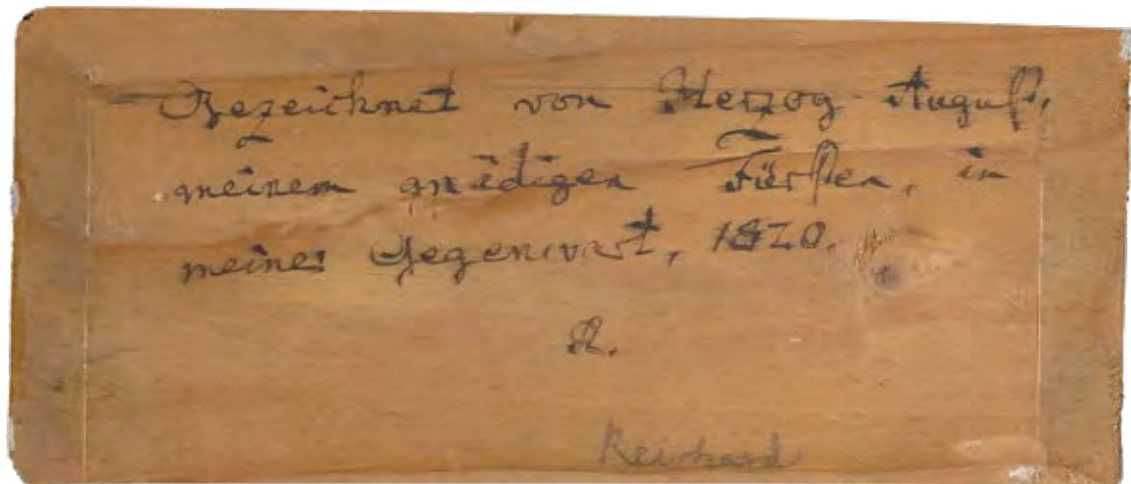 Gezeichnet von Herzog August,
meinem gnädigen Fürsten, in
meiner Gegenwart, 1820.
R.
Reinhard